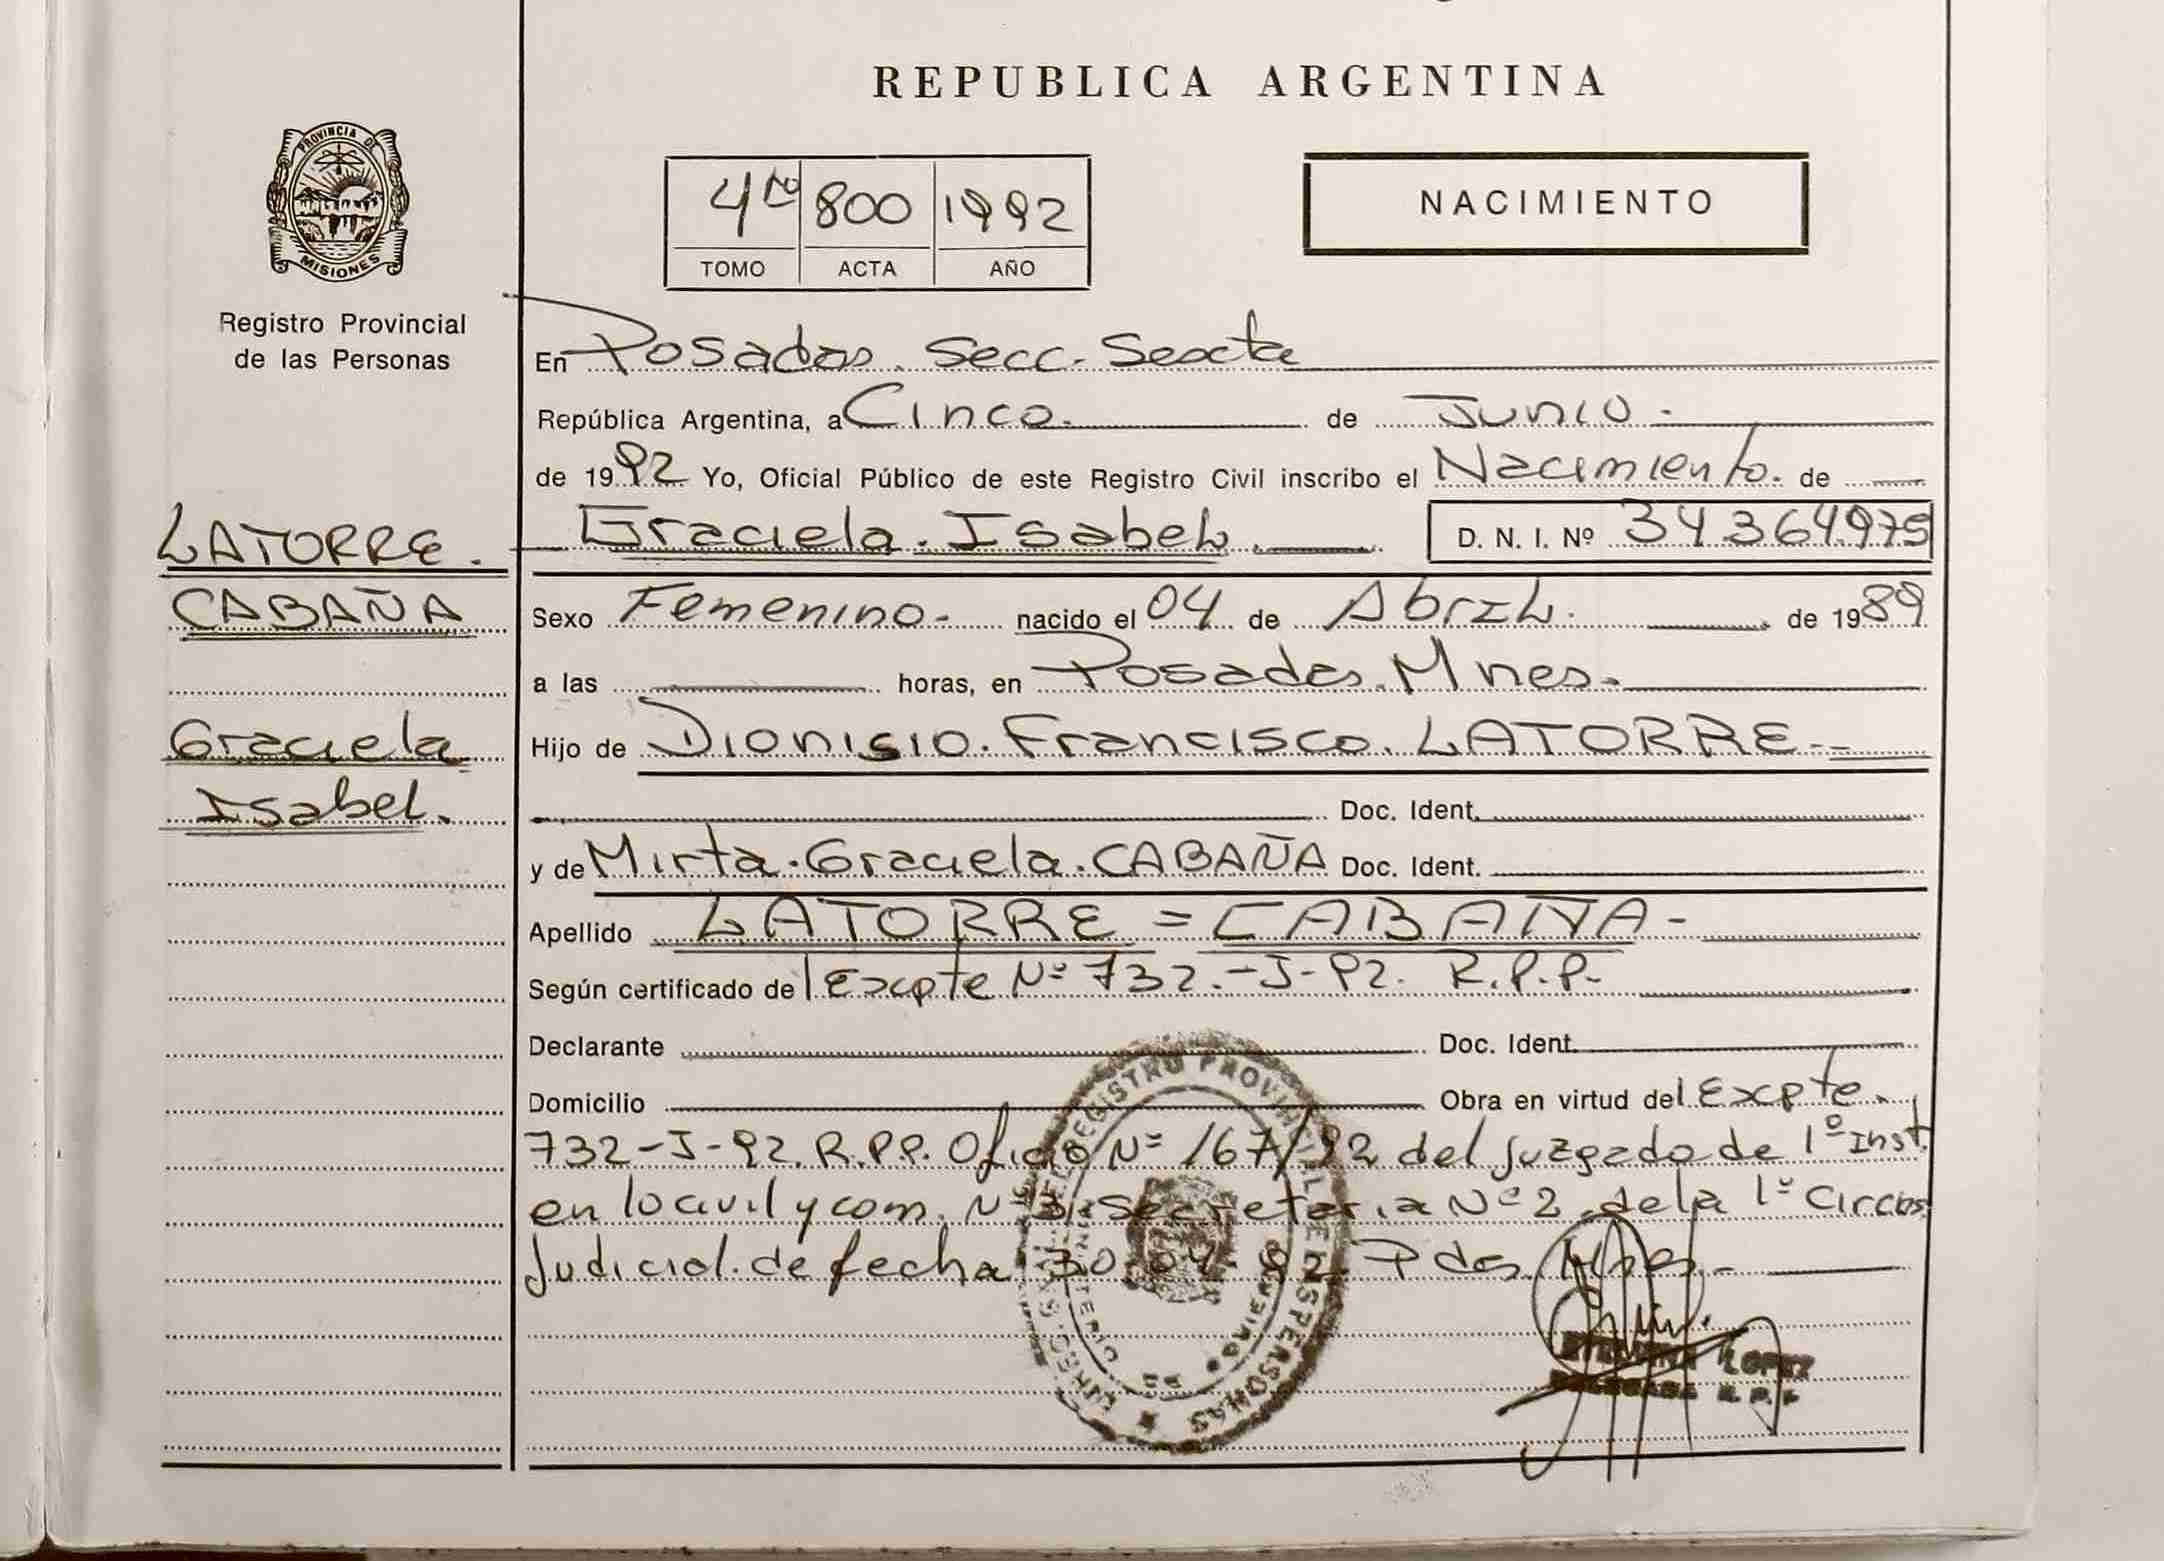 REPUBLICA ARGENTINA
PROVINCIA DE
MISIONES
Registro Provincial
de las Personas
4to 800 1992
TOMO ACTA AÑO
NACIMIENTO
En Posadas. Secc. Sexta
República Argentina, a Cinco. de Junio.
de 1992 Yo, Oficial Público de este Registro Civil inscribo el Nacimiento. de
Graciela. Isabel. D. N. I. Nº 34.364.975
LATORRE.
CABAÑA
Graciela
Isabel.
Sexo Femenino. nacido el 04 de Abril. de 1989
a las horas, en Posadas. Mnes.
Hijo de Dionisio. Francisco. LATORRE.
Doc. Ident.
y de Mirta. Graciela. CABAÑA Doc. Ident.
Apellido LATORRE = CABAÑA-
Según certificado de Expte Nº 732.-J-92. R.P.P.
Declarante Doc. Ident.
Domicilio Obra en virtud del Expte.
732-J-92. R.P.P. Oficio Nº 167/92 del Juzgado de 1º Inst.
en lo civil y com. Nº 3. Secretaria Nº 2. de la 1º Circns.
Judicial. de fecha 30.04.92. Pdas. Mnes.
REGISTRO PROVINCIAL DE LAS PERSONAS
MINISTERIO
GOBIERNO
LOPEZ